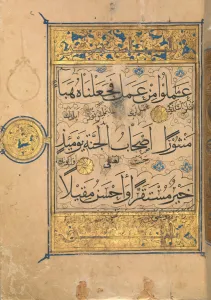 عملوا من عمل فجعلناه هبا
منثورا اصحاب الجنة يوميذ
خير مستقرا وأحسن مقيلا